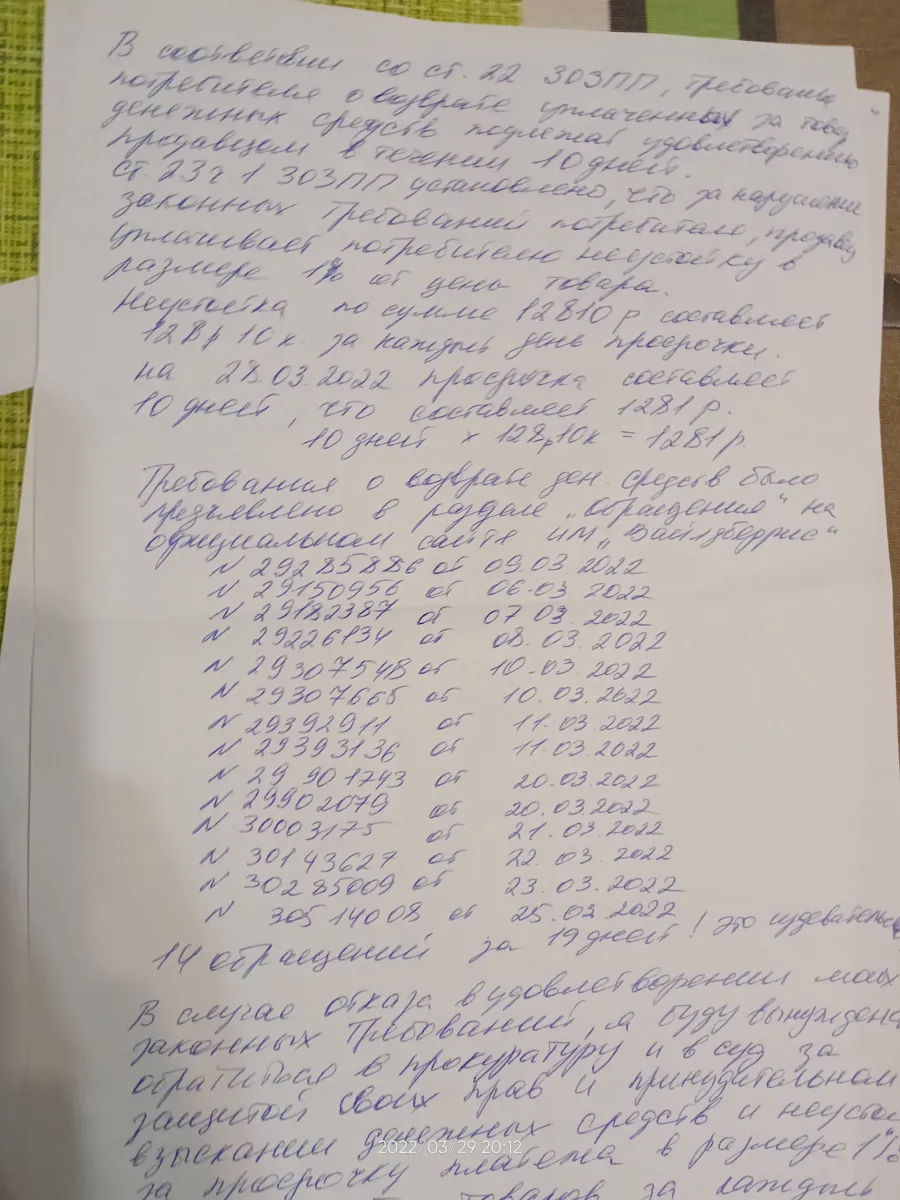 В соответвии со ст. 22 ЗОЗПП, требования
потребителя о возврате уплаченных за товар
денежных средств подлежат удовлетворению
продавцом в течении 10 дней.
ст. 23 ч. 1 ЗОЗПП установлено, что за нарушение
законных требований потребителю, продавец
уплачивает потребителю неустойку в
размере 1% от цены товара.
Неустойка по сумме 12810 р составляет
128 р 10 к. за каждый день просрочки.
на 28.03.2022 просрочка составляет
10 дней, что составляет 1281 р.
10 дней × 128р10к = 1281 р.
Требования о возврате ден. средств было
предъявлено в разделе „обращения" на
официальном сайте ИМ „Вайлдберрис"
N 29285886 от 09.03.2022
N 29150956 от 06.03.2022
N 29182387 от 07 03.2022
N 29226134 от 08.03.2022
N 29307548 от 10.03.2022
N 29307665 от 10.03.2022
N 29392911 от 11.03.2022
N 29393136 от 11.03.2022
N 29901743 от 20.03.2022
N 29902079 от 20.03.2022
N 30003175 от 21.03.2022
N 30143627 от 22.03.2022
N 30285009 от 23.03.2022
N 30514008 от 25.03.2022
14 обращений за 19 дней! это издевательс
В случае отказа в удовлетворении моих
законных требований, я буду вынуждена
обратиться в прокуратуру и в суд за
защитой своих прав и принудительном
взыскании денежных средств и неустой
за просрочку платежа в размере 1%
товаров за каждый
2022/03/29 20:12